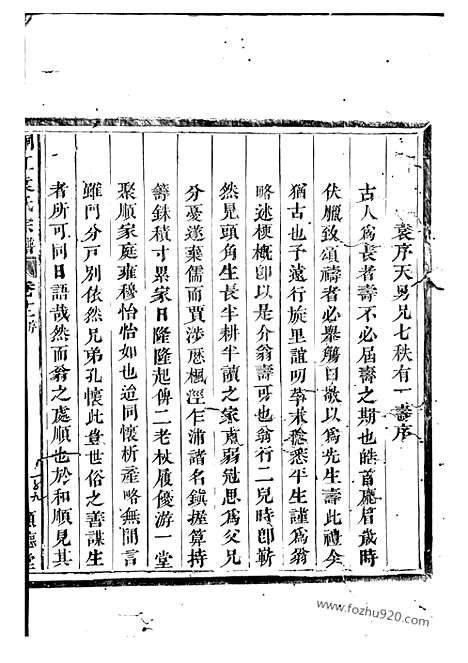 袁序天男兄七秩有一壽序
古人爲長者壽不必屆壽之期也皓首厖眉歲時
伏臘致頌禱者必舉觴曰敬以爲先生壽此禮矣
猶古也予遠行旅里誼叨莩末稔悉平生謹爲翁
略述梗概卽以是介翁壽可也翁行二兒時卽嶄
然見頭角生長半耕半讀之家甫弱冠思爲父兄
分憂遂棄儒而賈涉歷楓涇乍浦諸名鎮握算持
籌銖積寸累家日隆隆起俾二老杖履優游一堂
聚順家庭雍穆怡怡如也迨同懷析產略無閒言
雖門分戸別依然兄弟孔懷此豈世俗之善謀生
者所可同日語哉然而翁之處順也於和順見其
江袁氏宗譜 卷十二 序
德堂
www.fozhu920.com